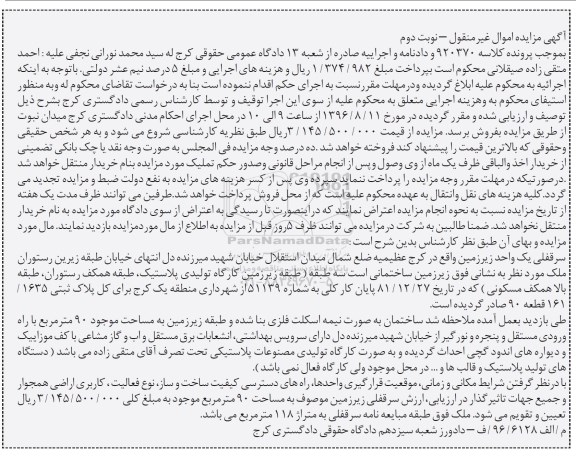 آگهی مزایده اموال غیرمنقول – نوبت دوم
بموجب پرونده کلاسه ۹۲۰۳۷۰ و دادنامه و اجراییه صادره از شعبه ۱۳ دادگاه عمومی حقوقی کرج له سید محمد نورانی نجفی علیه : احمد
متقی زاده صیقلانی محکوم است بپرداخت مبلغ ۹۸۲ / ۳۷۴ / ۱ ریال و هزینه های اجرایی و مبلغ ۵ درصد نیم عشر دولتی. باتوجه به اینکه
اجرائیه به محکوم علیه ابلاغ گردیده ودرمهلت مقررنسبت به اجرای حکم اقدام ننموده است بنا به درخواست تقاضای محکوم له وبه منظور
استیفای محکوم به وهزینه اجرایی متعلق به محکوم علیه از سوی این اجرا توقیف و توسط کارشناس رسمی دادگستری کرج بشرح ذیل
توصیف و ارزیابی شده و مقرر گردیده در مورخ ۱۱ / ۸ / ۱۳۹۶ از ساعت ۹ الی ۱۰ در محل اجرای احکام مدنی دادگستری کرج میدان نبوت
از طریق مزایده بفروش برسد. مزایده از قیمت ۰۰۰ / ۵۰۰ / ۱۴۵ / ۳ ریال طبق نظریه کارشناسی شروع می شود و به هر شخص حقیقی
وحقوقی که بالاترین قیمت را پیشنهاد کند فروخته خواهد شد .ده درصد وجه مزایده فی المجلس به صورت وجه نقد یا چک بانکی تضمینی
از خریدار اخذ والباقی ظرف یک ماه از وی وصول و پس از انجام مراحل قانونی وصدور حکم تملیک مورد مزایده بنام خریدار منتقل خواهد شد
.درصورتیکه درمهلت مقرر وجه مزایده را پرداخت ننماید سپرده وی پس از کسر هزینه های مزایده به نفع دولت ضبط و مزایده تجدید می
گردد.کلیه هزینه های نقل وانتقال به عهده محکوم علیه است که از محل فروش پرداخت خواهد شد.طرفین می توانند ظرف مدت یک هفته
از تاریخ مزایده نسبت به نحوه انجام مزایده اعتراض نمایند که در اینصورت تا رسیدگی به اعتراض از سوی دادگاه مورد مزایده به نام خریدار
منتقل نخواهد شد. ضمنا طالبین به شرکت در مزایده می توانند ظرف ۵روز قبل از مزایده به اطلاع از مال موردمزایده بازدید نمایند. مال مورد
مزایده و بهای آن طبق نظر کارشناس بدین شرح است :
سرقفلی یک واحد زیرزمین واقع در کرج عظیمیه ضلع شمال میدان استقلال خیابان شهید میرزنده دل انتهای خیابان طبقه زیرین رستوران
ملک مورد نظر به نشانی فوق زیرزمین ساختمانی است سه طبقه ( طبقه زیرزمین کارگاه تولیدی پلاستیک، طبقه همکف رستوران، طبقه
بالا همکف مسکونی ) که در تاریخ ۲۷ / ۱۲ / ۸۱ پایان کار کلی به شماره ۵۱۱۳۹ از شهرداری منطقه یک کرج برای کل پلاک ثبتی ۱۶۳۵ /
۱۶۱ قطعه ۹۰ صادر گردیده است.
طی بازدید بعمل آمده ملاحظه شد ساختمان به صورت نیمه اسکلت فلزی بنا شده و طبقه زیرزمین به مساحت موجود ۹۰ مترمربع با راه
ورودی مستقل و پنجره و نورگیر از خیابان شهید میرزنده دل دارای سرویس بهداشتی، انشعابات برق مستقل و اب و گاز مشاعی با کف موزاییک
و دیواره های اندود گچی احداث گردیده و به صورت کارگاه تولیدی مصنوعات پلاستیکی تحت تصرف آقای متقی زاده می باشد ( دستگاه
های تولید پلاستیک و قالب ها و ... در محل موجود ولی کارگاه فعال نمی باشد ).
با درنظر گرفتن شرایط مکانی و زمانی، موقعیت قرار گیری واحدها، راه های دسترسی کیفیت ساخت و ساز، نوع فعالیت ، کاربری اراضی همجوار
و جمیع جهات تاثیرگذار در ارزیابی، ارزش سرقفلی زیرزمین موصوف به مساحت ۹۰ مترمربع موجود به مبلغ کلی ۰۰۰ / ۵۰۰ / ۱۴۵ / ۳ ریال
تعیین و تقویم می شود. ملک فوق طبقه مبایعه نامه سرقفلی به متراژ ۱۱۸ مترمربع می باشد.
م / الف ۶۱۲۸ / ۹۶ / ف – دادورز شعبه سیزدهم دادگاه حقوقی دادگستری کرج
ParsNamadData